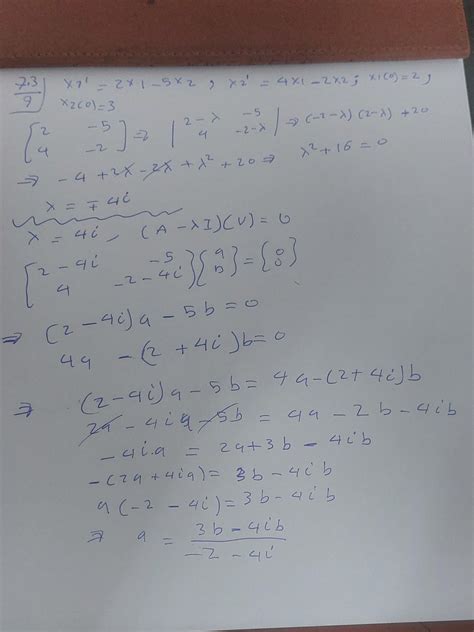 7.3/9 x2' = 2x1 - 5x2 , x2' = 4x1 - 2x2 ; x1(0) = 2 ,
x2(0) = 3
[2 -5; 4 -2] ⇒ |2-λ -5; 4 -2-λ| ⇒ (-2-λ)(2-λ) + 20
⇒ -4 + 2λ - 2λ + λ² + 20 ⇒ λ² + 16 = 0
λ = ∓ 4i
λ = 4i , (A - λI)(V) = 0
[2-4i -5; 4 -2-4i] {a; b} = {0; 0}
⇒ (2-4i)a - 5b = 0
4a - (2+4i)b = 0
⇒ (2-4i)a - 5b = 4a - (2+4i)b
2a - 4ia - 5b = 4a - 2b - 4ib
-4ia = 2a + 3b - 4ib
-(2a + 4ia) = 3b - 4ib
a(-2-4i) = 3b - 4ib
⇒ a = (3b - 4ib)/(-2 - 4i)